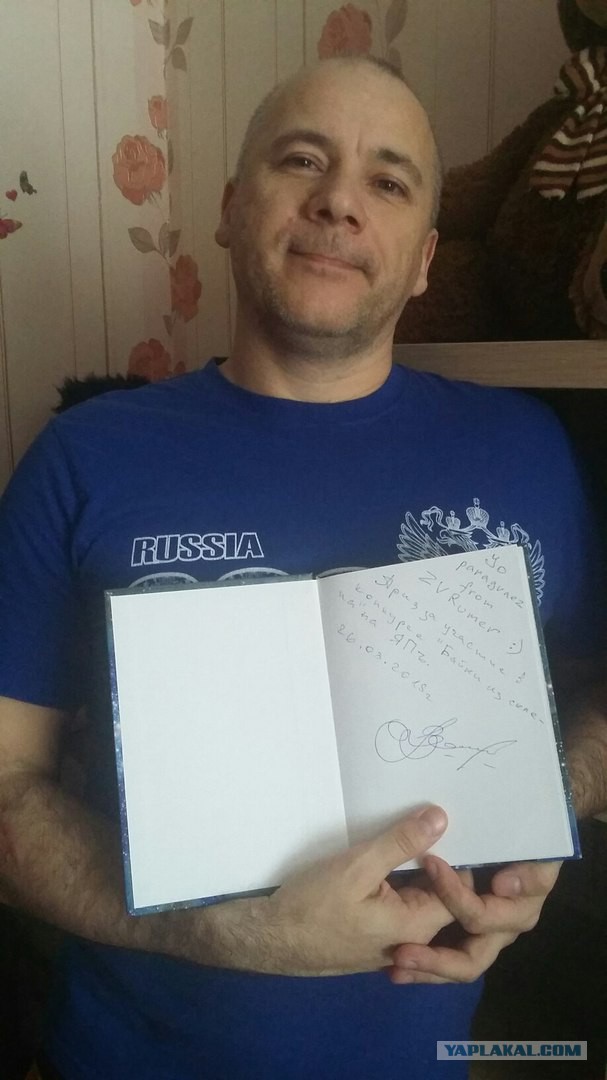 RUSSIA
Yo
paragulez
from
ZVRumer :)
Приз за участие в
конкурсе "Байки из склепа"
на ЯПъ.
26.03.2018г
YAPLAKAL.COM